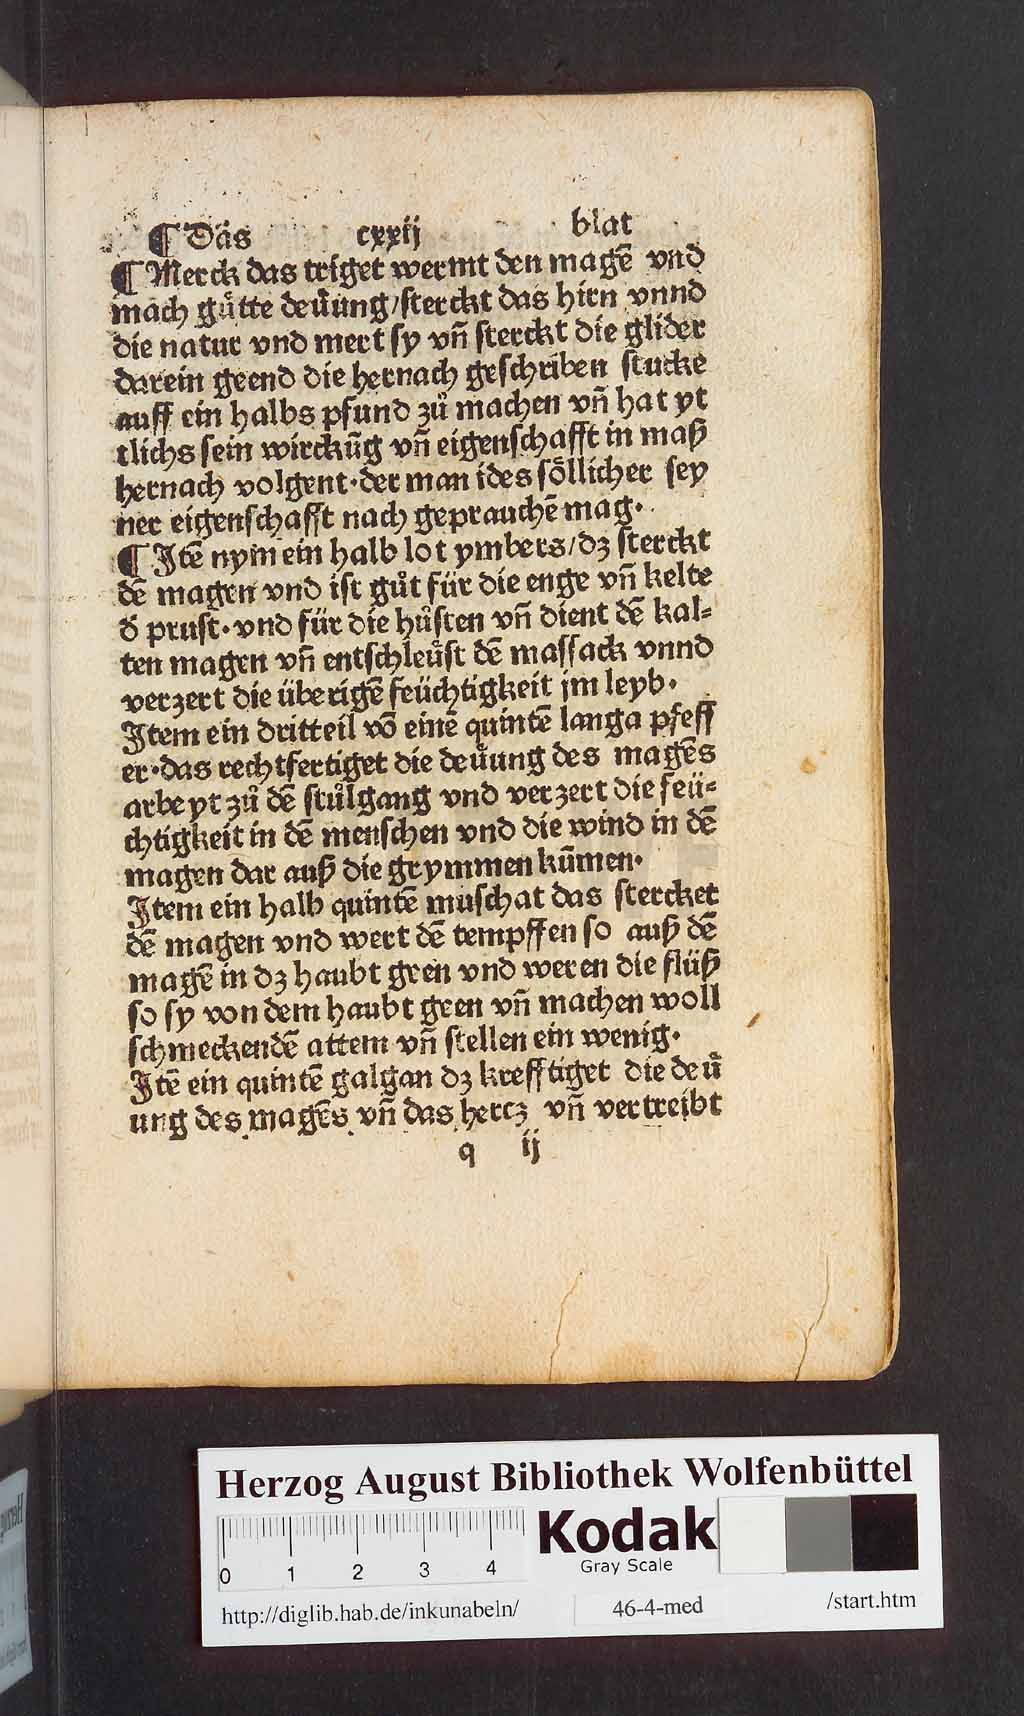 ¶ Das cxxij blat
¶ Merck das triget wermt den magē vnd
mach gůtte deuͤung/sterckt das hirn vnnd
die natur vnd mert sy vn̄ sterckt die glider
darein geend die hernach geschriben stucke
auff ein halbs pfund zů machen vn̄ hat yt
tlichs sein wirckūg vn̄ eigenschafft in maß
hernach volgent·der man ides soͤllicher sey
ner eigenschafft nach geprauchē mag·
¶ Itē nym ein halb lot ymbers/dz sterckt
dē magen vnd ist gůt für die enge vn̄ kelte
d̄ prust·vnd für die hůsten vn̄ dient dē kal⸗
ten magen vn̄ entschleuͤst dē massack vnnd
verzert die überigē feüchtigkeit im leyb·
Item ein dritteil vō einē quintē langa pfeff
er·das rechtfertiget die deuͤung des magēs
arbeyt zů dē stůlgang vnd verzert die feü⸗
chtigkeit in dē menschen vnd die wind in dē
magen dar auß die grymmen kūmen·
Item ein halb quintē muschat das stercket
dē magen vnd wert dē tempffen so auß dē
magē in dz haubt geen vnd weren die flüß
so sy von dem haubt geen vn̄ machen woll
schmeckendē attem vn̄ stellen ein wenig·
Itē ein quintē galgan dz krefftiget die deuͤ
ung des magēs vn̄ das hercz vn̄ vertreibt
q ij
Herzog August Bibliothek Wolfenbüttel
0 1 2 3 4
Kodak
Gray Scale
http://diglib.hab.de/inkunabeln/ 46-4-med /start.htm